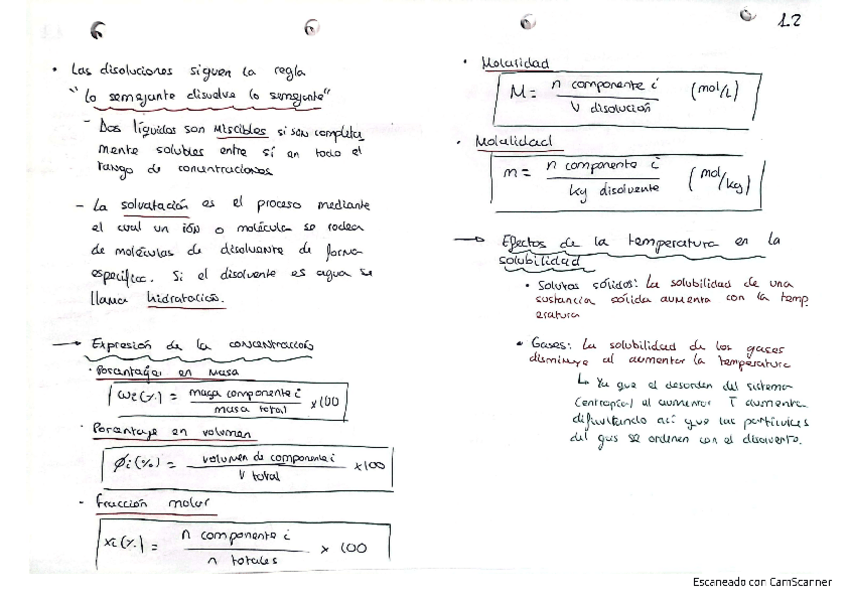 1.2
• Las disoluciones siguen la regla
"lo semejante disuelve lo semejante"
- Dos líquidos son miscibles si son completa
mente solubles entre sí en todo el
rango de concentraciones
- La solvatación es el proceso mediante
el cual un ión o molécula se rodea
de moléculas de disolvente de forma
específica. Si el disolvente es agua se
llama hidratación.
→ Expresión de la concentración
• Porcentaje en masa
ωi(%) = masa componente i / masa total x100
• Porcentaje en volumen
ϕi(%) = volumen de componente i / V total x100
- Fracción molar
xi(%) = n componente i / n totales x 100
• Molalidad
M = n componente i / V disolución (mol/L)
• Molalidad
m = n componente i / kg disolvente (mol/kg)
→ Efectos de la temperatura en la
solubilidad
• Solutos sólidos: La solubilidad de una
sustancia sólida aumenta con la temp
eratura
• Gases: La solubilidad de los gases
disminuye al aumentar la temperatura
↳ Ya que el desorden del sistema
(entropía) al aumentar T aumenta
dificultando así que las partículas
del gas se ordenen con el disolvente.
Escaneado con CamScanner